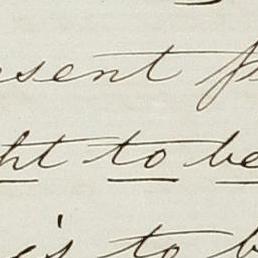 esent
ht to be
is to b